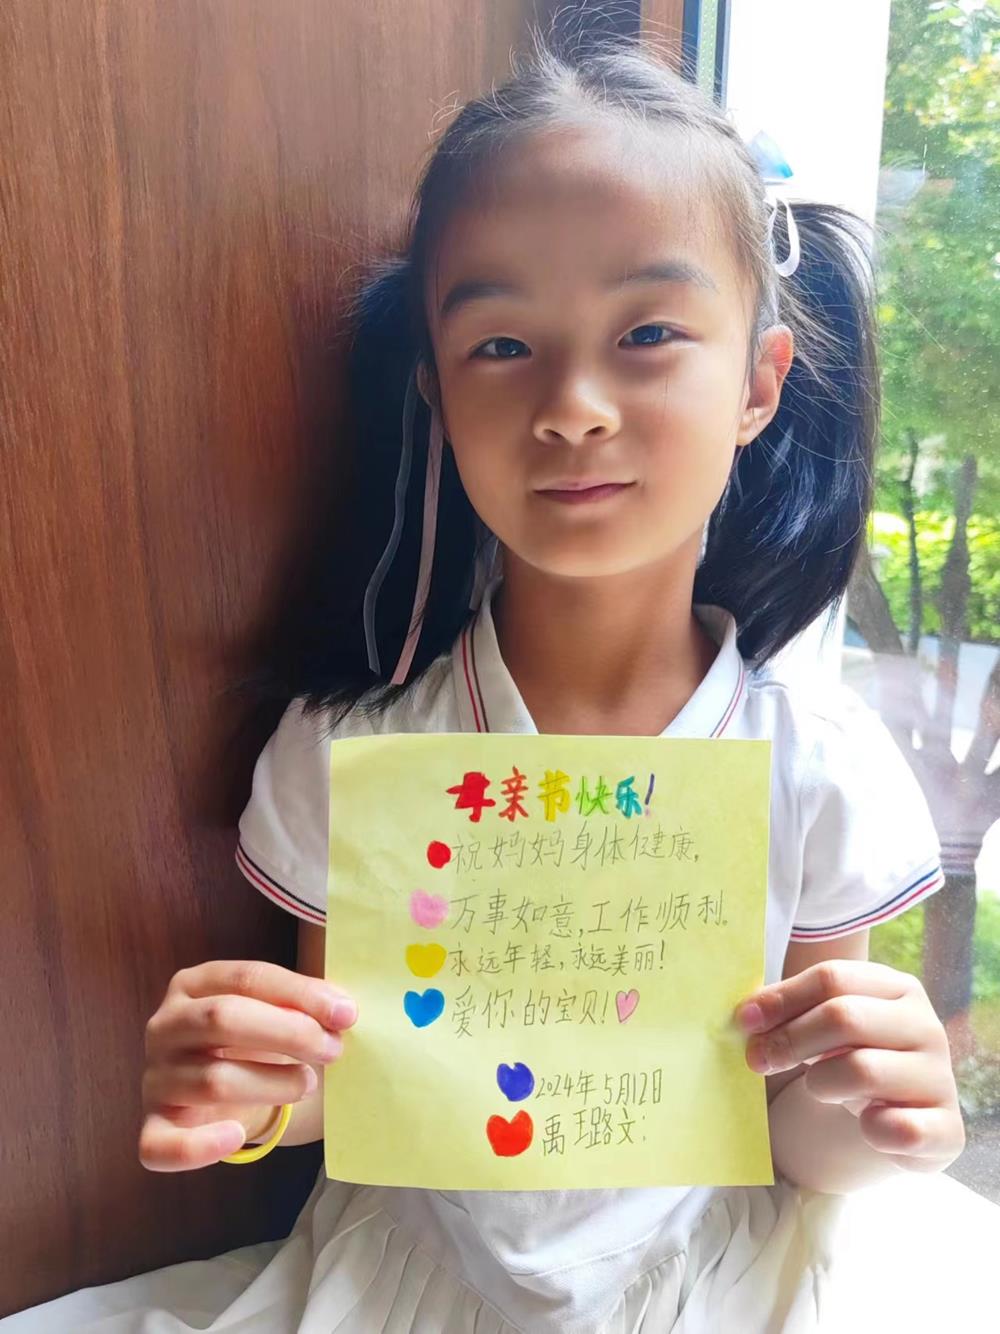 母亲节快乐!
祝妈妈身体健康,
万事如意,工作顺利。
永远年轻,永远美丽!
爱你的宝贝!
2024年5月12日
禹珏路文: